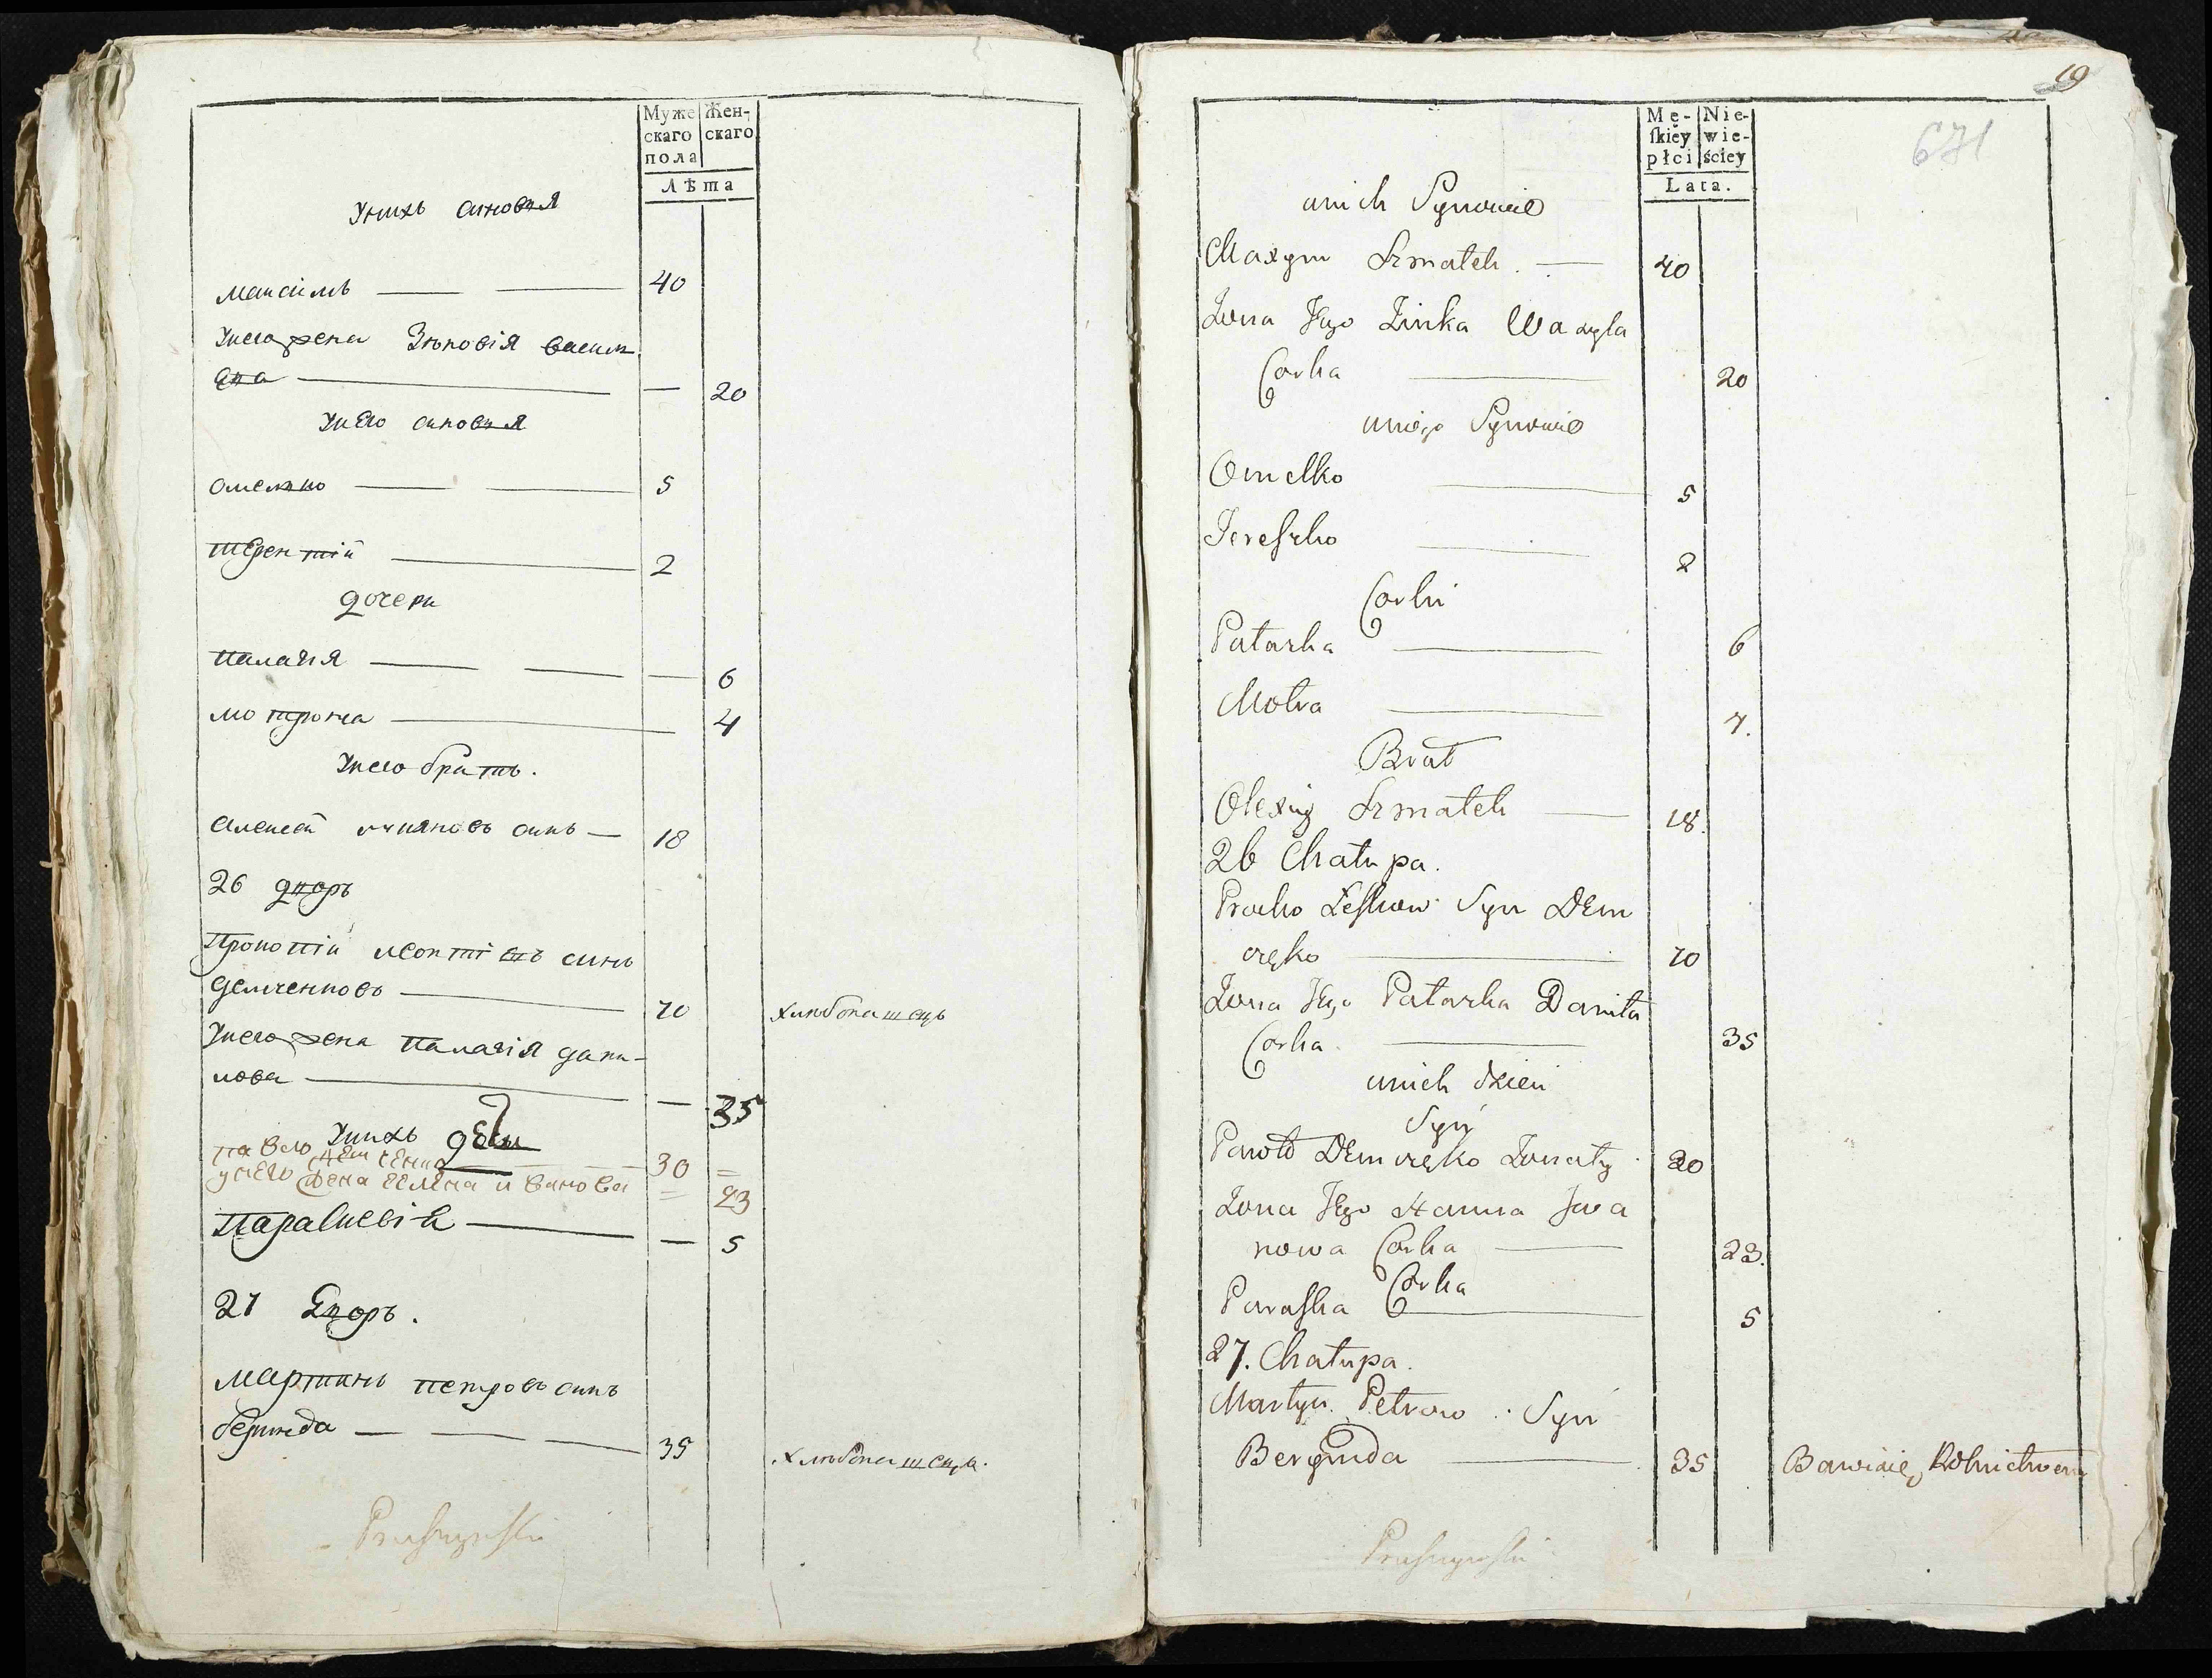 Муже
скаго
пола
Жен-
скаго
Лѣта
Унихъ синовья
Максимъ 40
Унего жена Зѣновія васил
ева 20
Унего синовья
Омелко 5
Терентій 2
дочери
Палагія 6
Мотрона 4
Унего братъ.
Алексей синъ 18
26 дворъ
Прокопій леонтіевъ синъ
демченковъ 70 хлѣбопашецъ
Унего жена Палагія дани-
лова 35
Унихъ дѣти
павло демченко 30 =
унего жена ганна иванова = 23
Параскевія 5
27 Дворъ.
Мартинъ петровъ синъ
берында 35 хлѣбопашецъ.
Pruszynski
19
671
Mę-
skiey
płci
Nie-
wie-
ściey
Lata.
unich Synowie
Maxym Szmatek. 40
Zona Jego Zinka Wazyla
Corka 20
uniego Synowie
Omelko 5
Tereszko 2
Corki
Patazka 6
Motra 4.
Brat
Olexiy Szmatek 18.
26 Chatupa.
Procko Leskow Syn Dem
częko 70
Zona Jego Patazka Daniła
Corka 35
unich dzieci
Syn
Pawło Demczęko Zonaty 30
Zona Jego Hanna Iwa
nowa Corka 23.
Corka
Paraska 5
27. Chatupa.
Martyn Petrow Syn
Berynda 35 Bawi sie Rolnictwem
Pruszynski